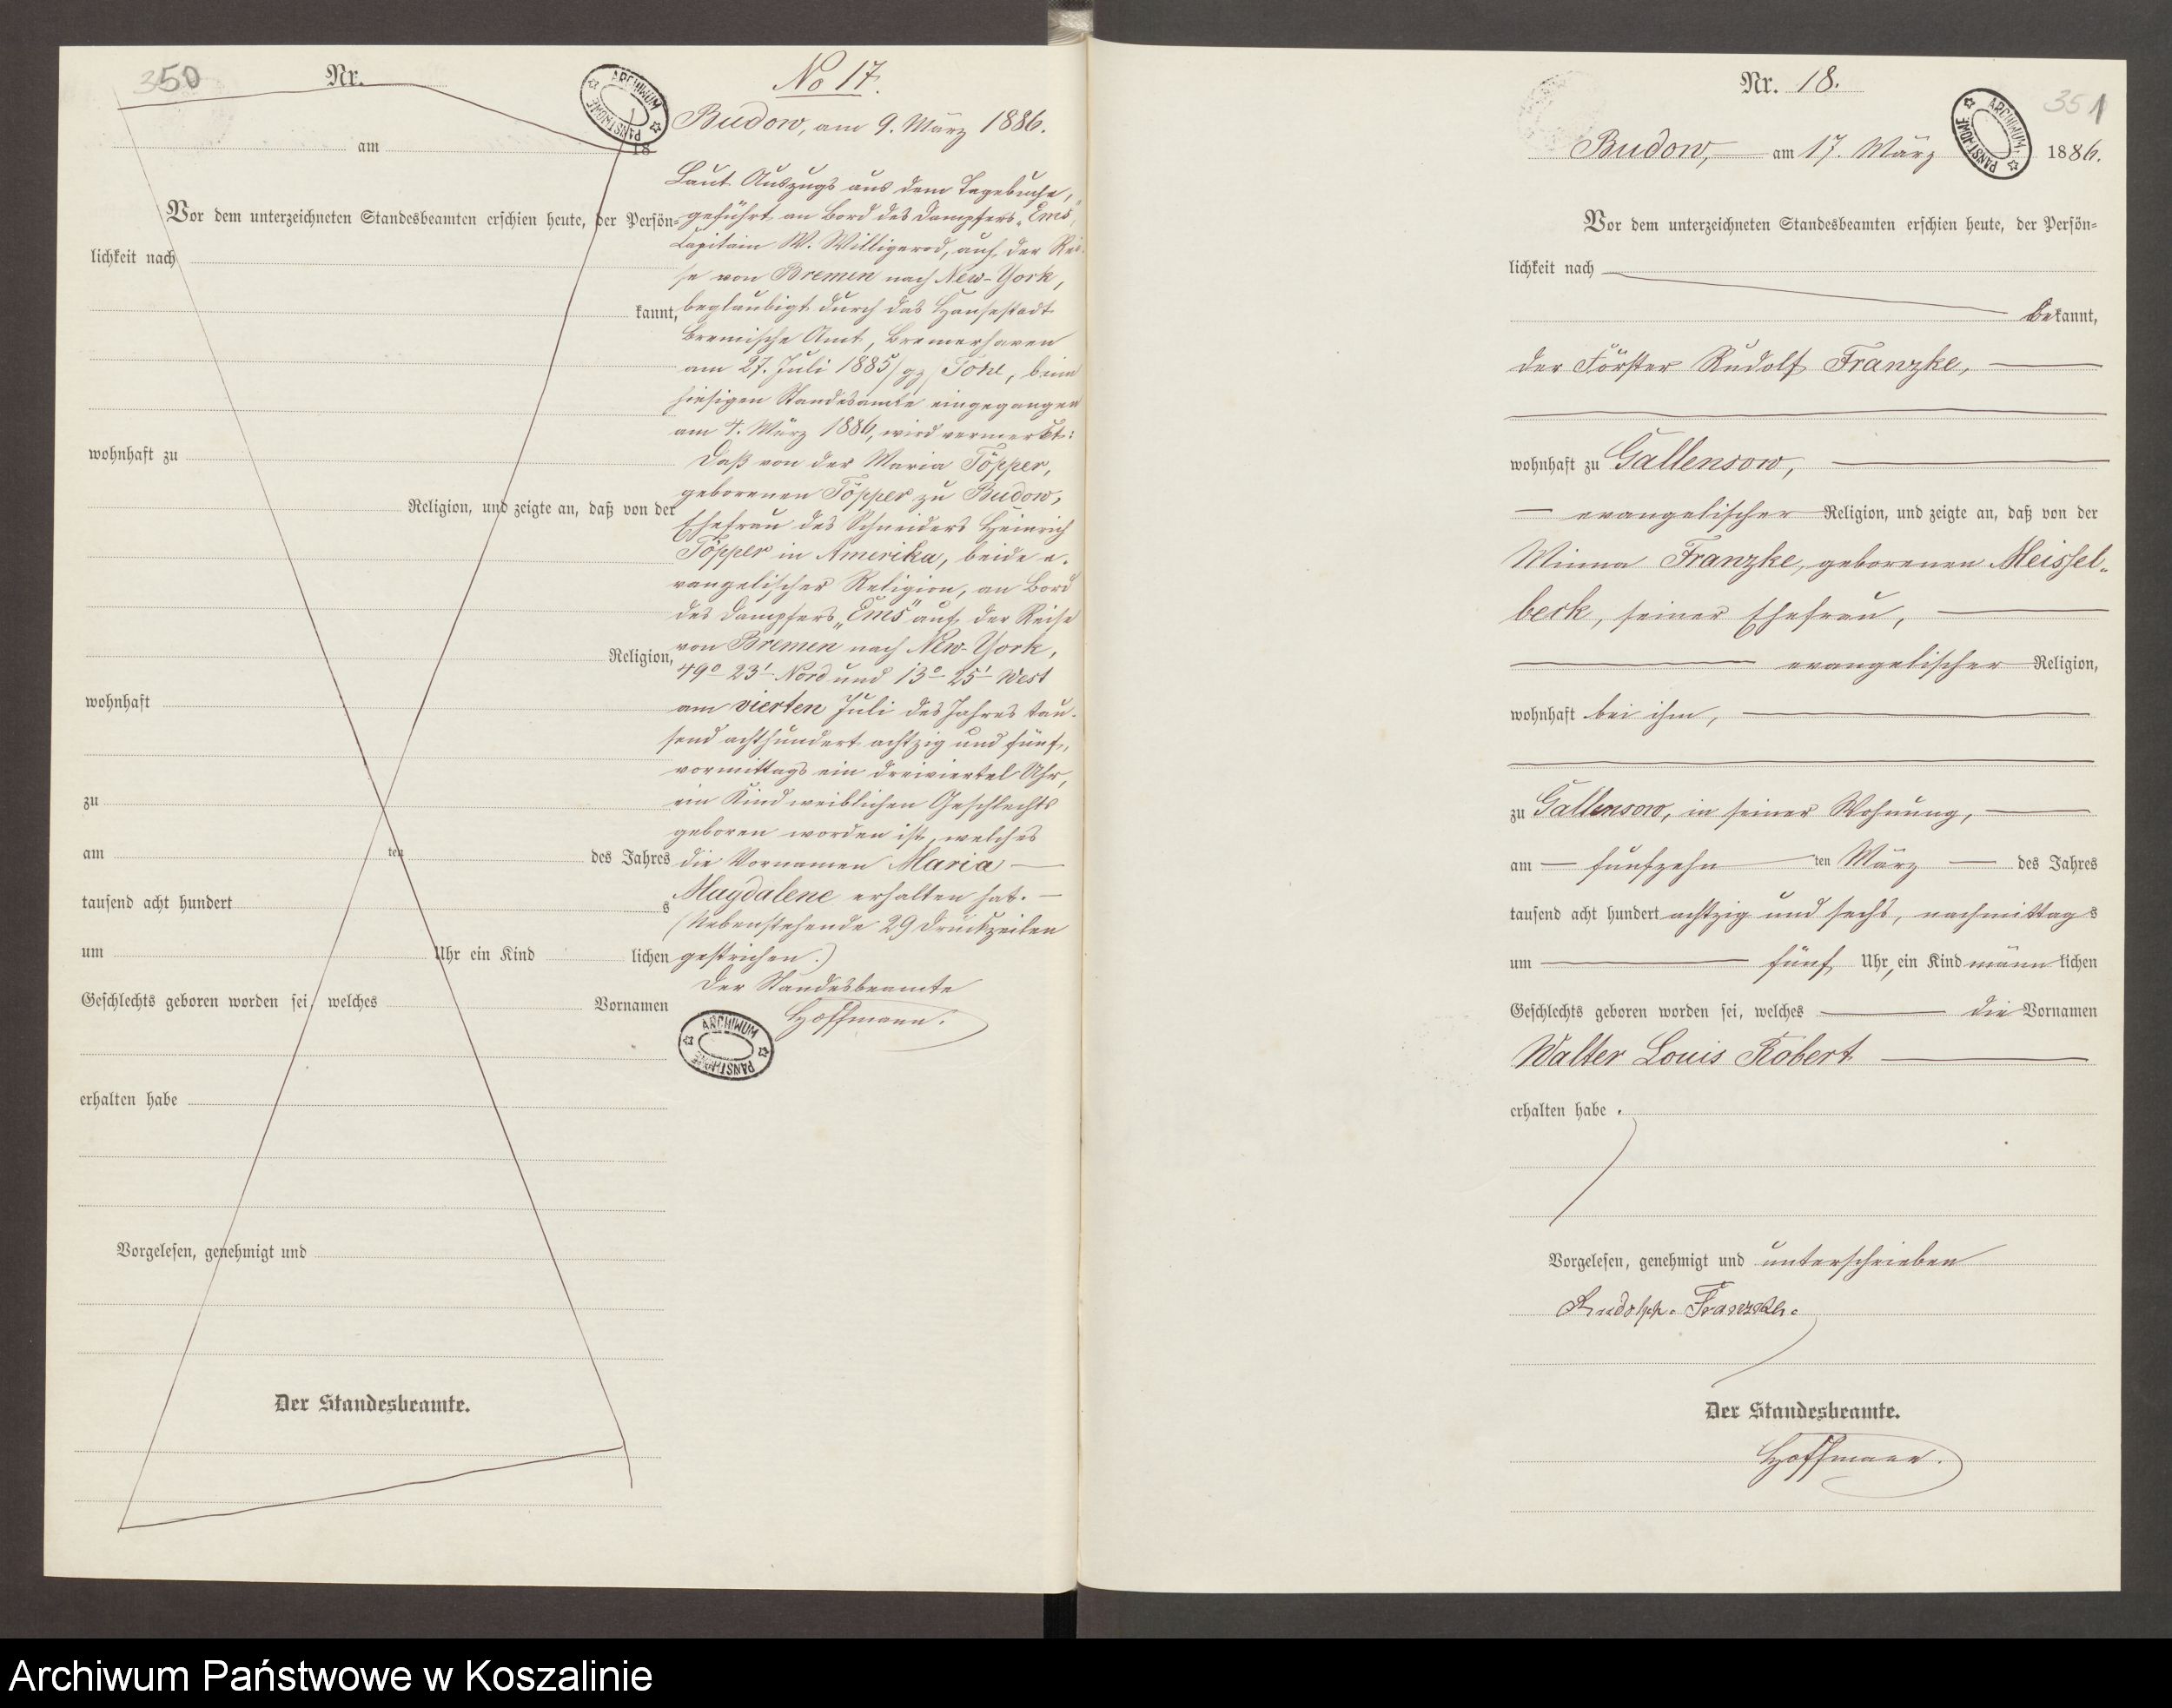 350
Nr.
am 18
Vor dem unterzeichneten Standesbeamten erschien heute, der Persön-
lichkeit nach
kannt,
wohnhaft zu
Religion, und zeigte an, daß von der
Religion,
wohnhaft
zu
am ten des Jahres
tausend acht hundert s
um Uhr ein Kind lichen
Geschlechts geboren worden sei, welches Vornamen
erhalten habe
Vorgelesen, genehmigt und
Der Standesbeamte.
No 17.
Budow, am 9. März 1886.
Laut Auszugs aus dem Tagebuche,
geführt an Bord des Dampfers „Ems",
Capitain W. Willigerod, auf der Rei-
se von Bremen nach New-York,
beglaubigt durch das Hansestadt
Bremische Amt, Bremerhaven
am 27. Juli 1885 /gz/ beim
hiesigen Standesamte eingegangen
am 4. März 1886, wird vermerkt:
Daß von der Maria Töpper,
geborenen Töpper zu Budow,
Ehefrau des Schneiders Heinrich
Töpper in Amerika, beide e-
vangelischer Religion, an Bord
des Dampfers „Ems" auf der Reise
von Bremen nach New-York,
49° 23' Nord und 13° 25' West
am vierten Juli des Jahres tau-
send achthundert achtzig und fünf,
vormittags ein dreiviertel Uhr,
ein Kind weiblichen Geschlechts
geboren worden ist, welches
die Vornamen Maria
Magdalene erhalten hat.
(Nebenstehende 29 Druckzeilen
gestrichen.)
Der Standesbeamte
Hoffmann.
ARCHIWUM PAŃSTWOWE
Nr. 18.
351
Budow, am 17. März 1886.
ARCHIWUM PAŃSTWOWE
Vor dem unterzeichneten Standesbeamten erschien heute, der Persön-
lichkeit nach
bekannt,
der Förster Rudolf Franzke,
wohnhaft zu Gallensow,
evangelischer Religion, und zeigte an, daß von der
Minna Franzke, geborenen Meissel-
beck, seiner Ehefrau,
evangelischer Religion,
wohnhaft bei ihm,
zu Gallensow, in seiner Wohnung,
am fünfzehn ten März des Jahres
tausend acht hundert achtzig und sechs, nachmittag s
um fünf Uhr, ein Kind männ lichen
Geschlechts geboren worden sei, welches die Vornamen
Walter Louis Robert
erhalten habe.
Vorgelesen, genehmigt und unterschrieben
Rudolph. Franzke.
Der Standesbeamte.
Hoffmann.
Archiwum Państwowe w Koszalinie